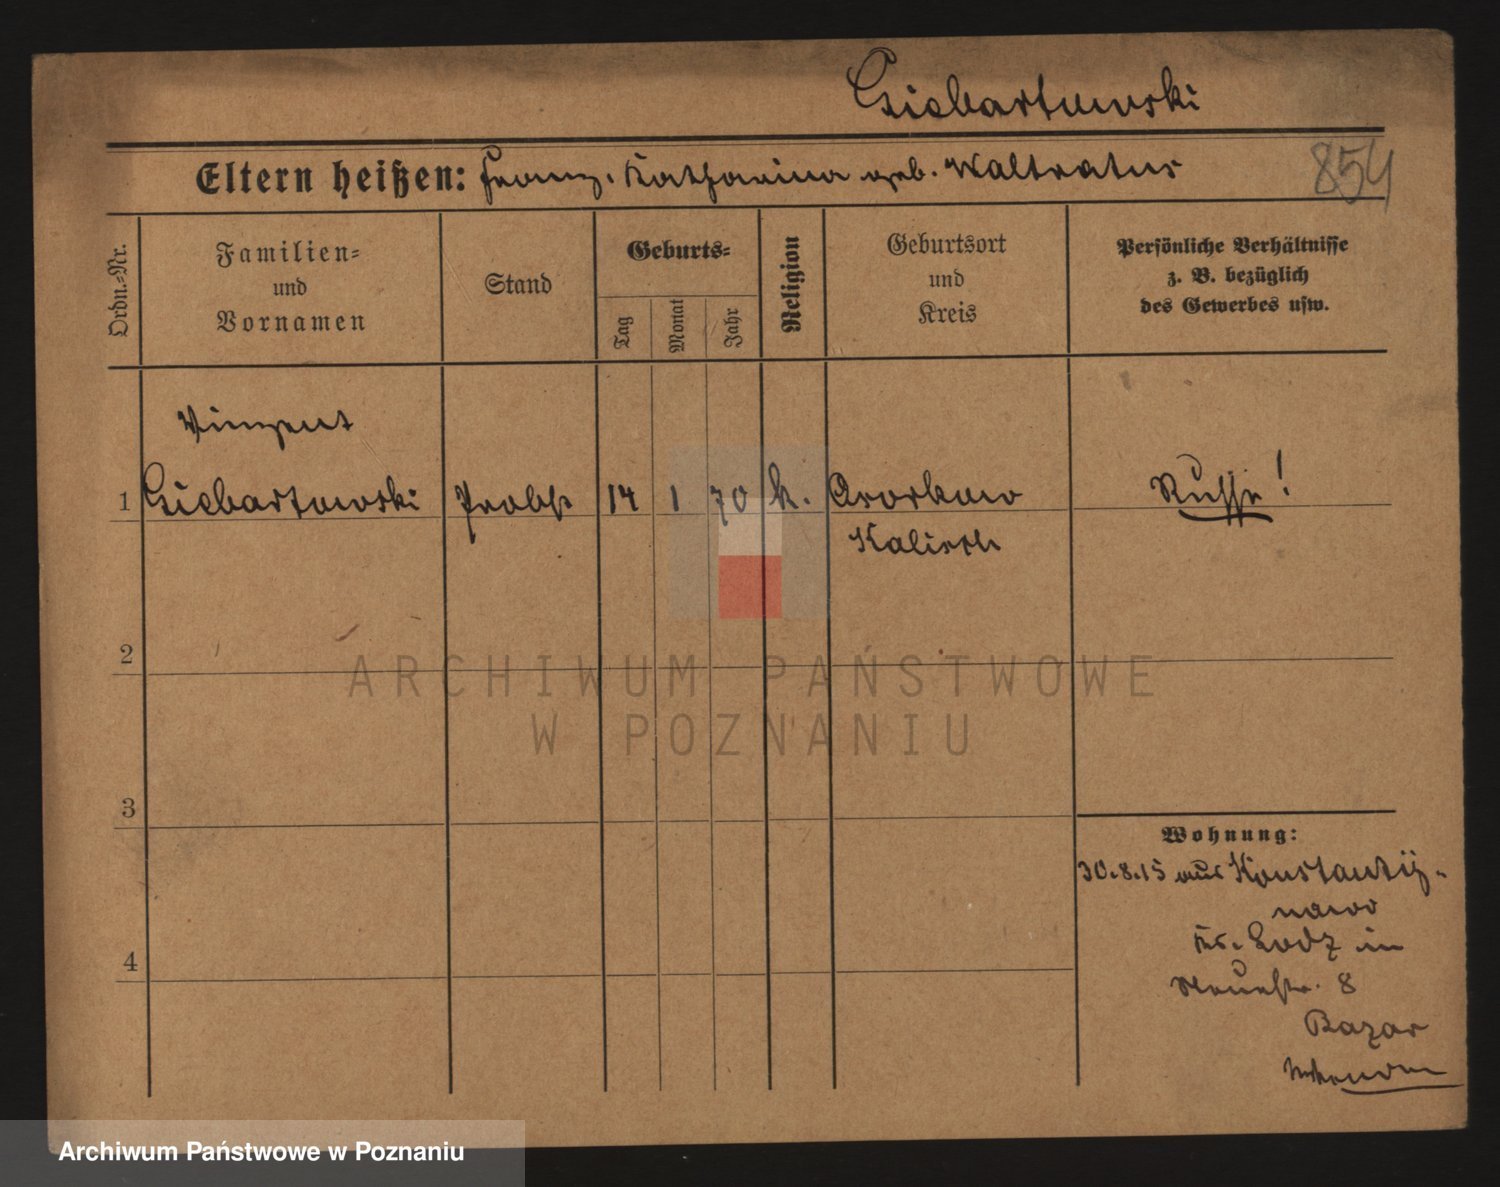 Giebartowski
Eltern heißen: Franz. Katharina geb. Waltratus
854
Ordn.-Nr.
Familien-
und
Vornamen
Stand
Geburts-
Tag
Monat
Jahr
Religion
Geburtsort
und
Kreis
Persönliche Verhältnisse
z. B. bezüglich
des Gewerbes usw.
Vinzent
1 Giebartowski Probst 14 1 70 k. Ozorkow Russe!
Kalisch
2
3
4
Wohnung:
30.8.15 aus Konstanty-
nowo
Kr. Lodz in
Neuestr. 8
Bazar
ARCHIWUM PAŃSTWOWE
W POZNANIU
Archiwum Państwowe w Poznaniu